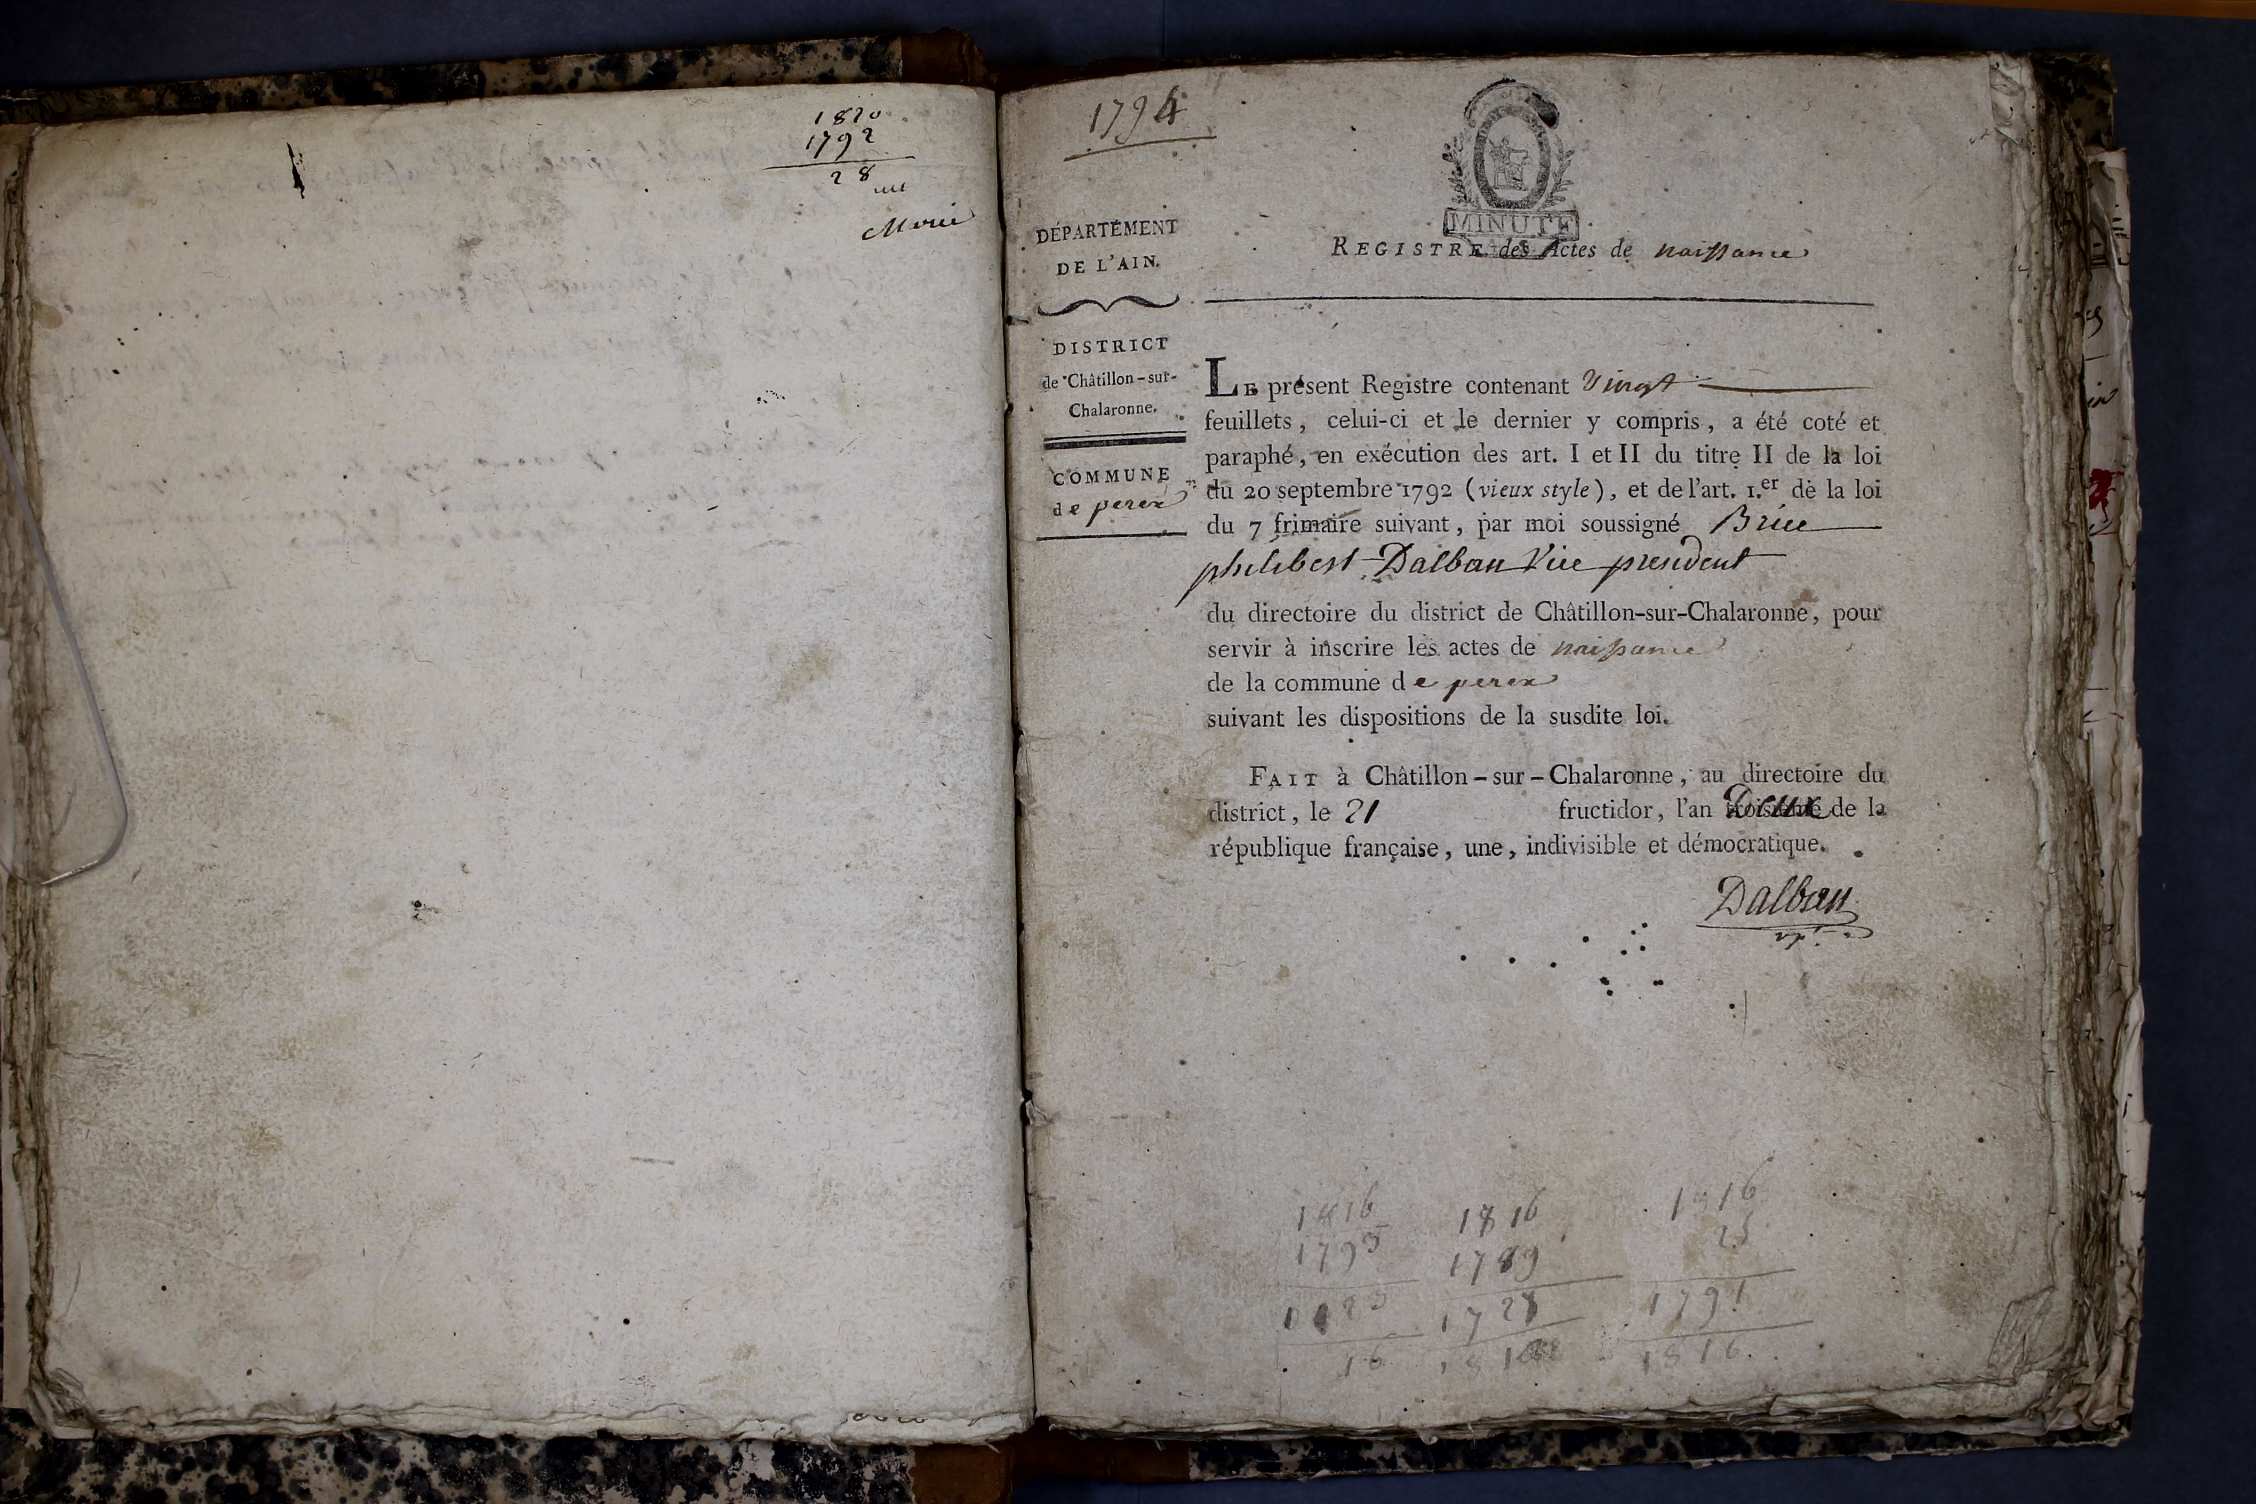 1820
1792
28
1794
MINUTE
DÉPARTEMENT
DE L'AIN.
REGISTRE des Actes de naissance
DISTRICT
de Châtillon-sur-
Chalaronne.
COMMUNE
de perex
LE présent Registre contenant Vingt
feuillets, celui-ci et le dernier y compris, a été coté et
paraphé, en exécution des art. I et II du titre II de la loi
du 20 septembre 1792 (vieux style), et de l'art. 1.er de la loi
du 7 frimaire suivant, par moi soussigné Brice
philibert Dalban Vice president
du directoire du district de Châtillon-sur-Chalaronne, pour
servir à inscrire les actes de naissance
de la commune de perex
suivant les dispositions de la susdite loi.
FAIT à Châtillon-sur-Chalaronne, au directoire du
district, le 21 fructidor, l'an Deux de la
république française, une, indivisible et démocratique.
Dalban
vp.
1816 1816 1816
1793 1789 25
1728 1791
16 1816